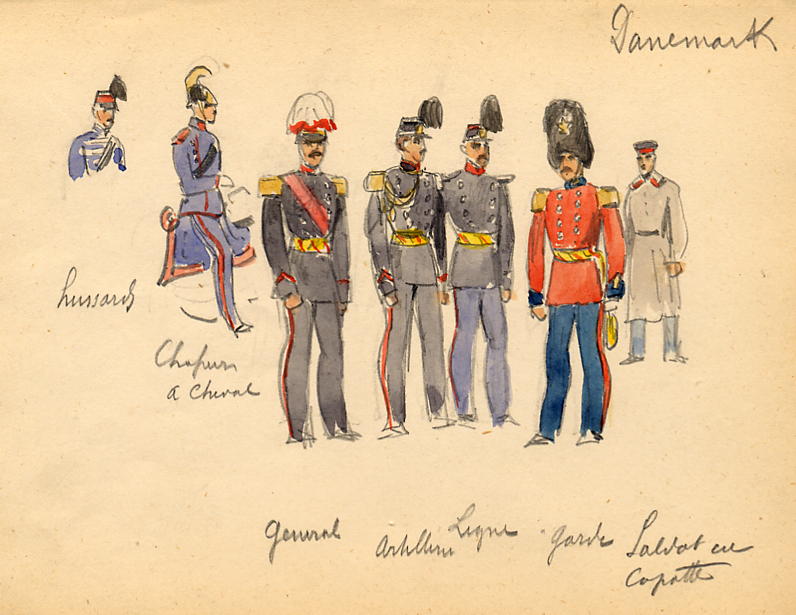 Danemark
hussards
Chasseurs
a cheval
General
Artillerie
Ligne
Garde
Soldat en
Capotte